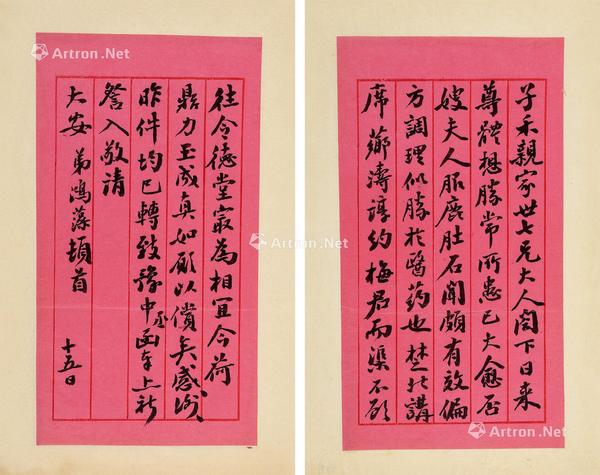 子禾親家世七兄大人閣下日來
尊體想勝常所患已大愈否
嫂夫人服鹿肚石聞頗有效偏
方調理似勝於醫藥也楚北講
席薌濤諄約梅君而渠不願
往令德堂最為相宜今荷
鼎力玉成真如願以償矣感謝
昨件均已轉致豫中丞函奉上祈
詧入敬請
大安 弟鴻藻頓首
十五日
Artron.Net
Artron.Net
Artron.Net
Artron.Net
Artron.Net